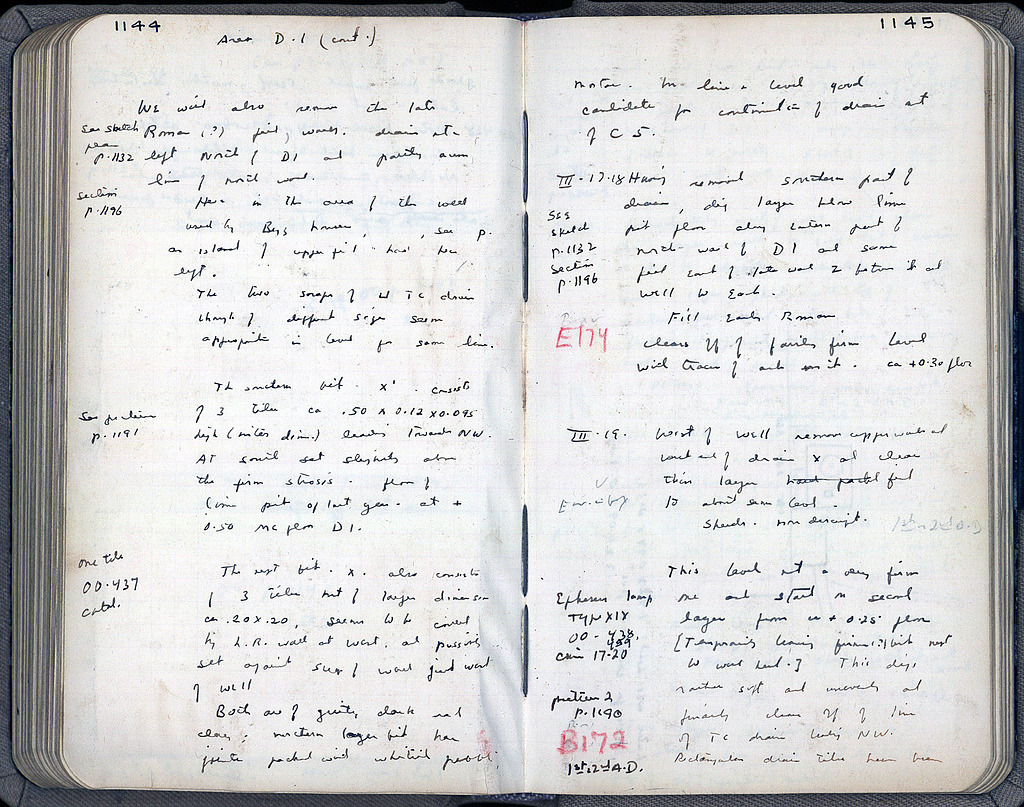 1144
Area D.1 (cont.)
We will also remove the late
see sketch
plan
p.1132
Roman (?) fill, walls. drain etc.
left North of D1 and partly over
line of north wall.
section
p.1196
Here in the area of the well
used by Byz house, see p.
an island of upper fill had been
left.
The two scraps of TC drain
though of different sizes seem
appropriate in level for same line.
The southern bit. x'. consists
of 3 tiles ca .50 x 0.12 x 0.095
see picture
p.1191
high (inter dim.) leading towards NW.
At south set slightly above
the firm strosis. floor of
lime pit of last year. at +
0.50 floor D1.
one tile
00.437
The next bit. x. also consists
of 3 tiles but of larger dimension
ca .20 x .20, seems to be covered
by L.R. wall at West. and possibly
set against wall just west
of well
Both are of gritty, dark red
clay: northern larger bit has
joints packed with whitish
1145
mortar. In line & level good
candidate for continuation of drain at
of C 5.
III-17-18 Having removed southern part of
drain, dig layer below lime
see
sketch
p.1132
section
p.1196
pit floor along eastern part of
north wall of D1 and same
fill East of late wall 2 between it and
well to East.
Fill Early Roman
E174
clears off of fairly firm level
with traces of ash on it. ca +0.30 floor
III-19. West of well remove upper walls and
west end of drain x and clear
thin layer fill
to about same level.
sherds. non descript.
1st-2nd A.D
This level not a very firm
Ephesus lamp
Type XIX
00-438,
439
coin 17-20
one and start on second
layer from ca + 0.25 floor
[Temporarily leaving bit next
to west wall.] This dep.
rather soft and unevenly and
picture 2
p.1190
finally clears off of line
B172
of TC drain leading NW.
1st-2nd A.D.
Rectangular drain tiles have been